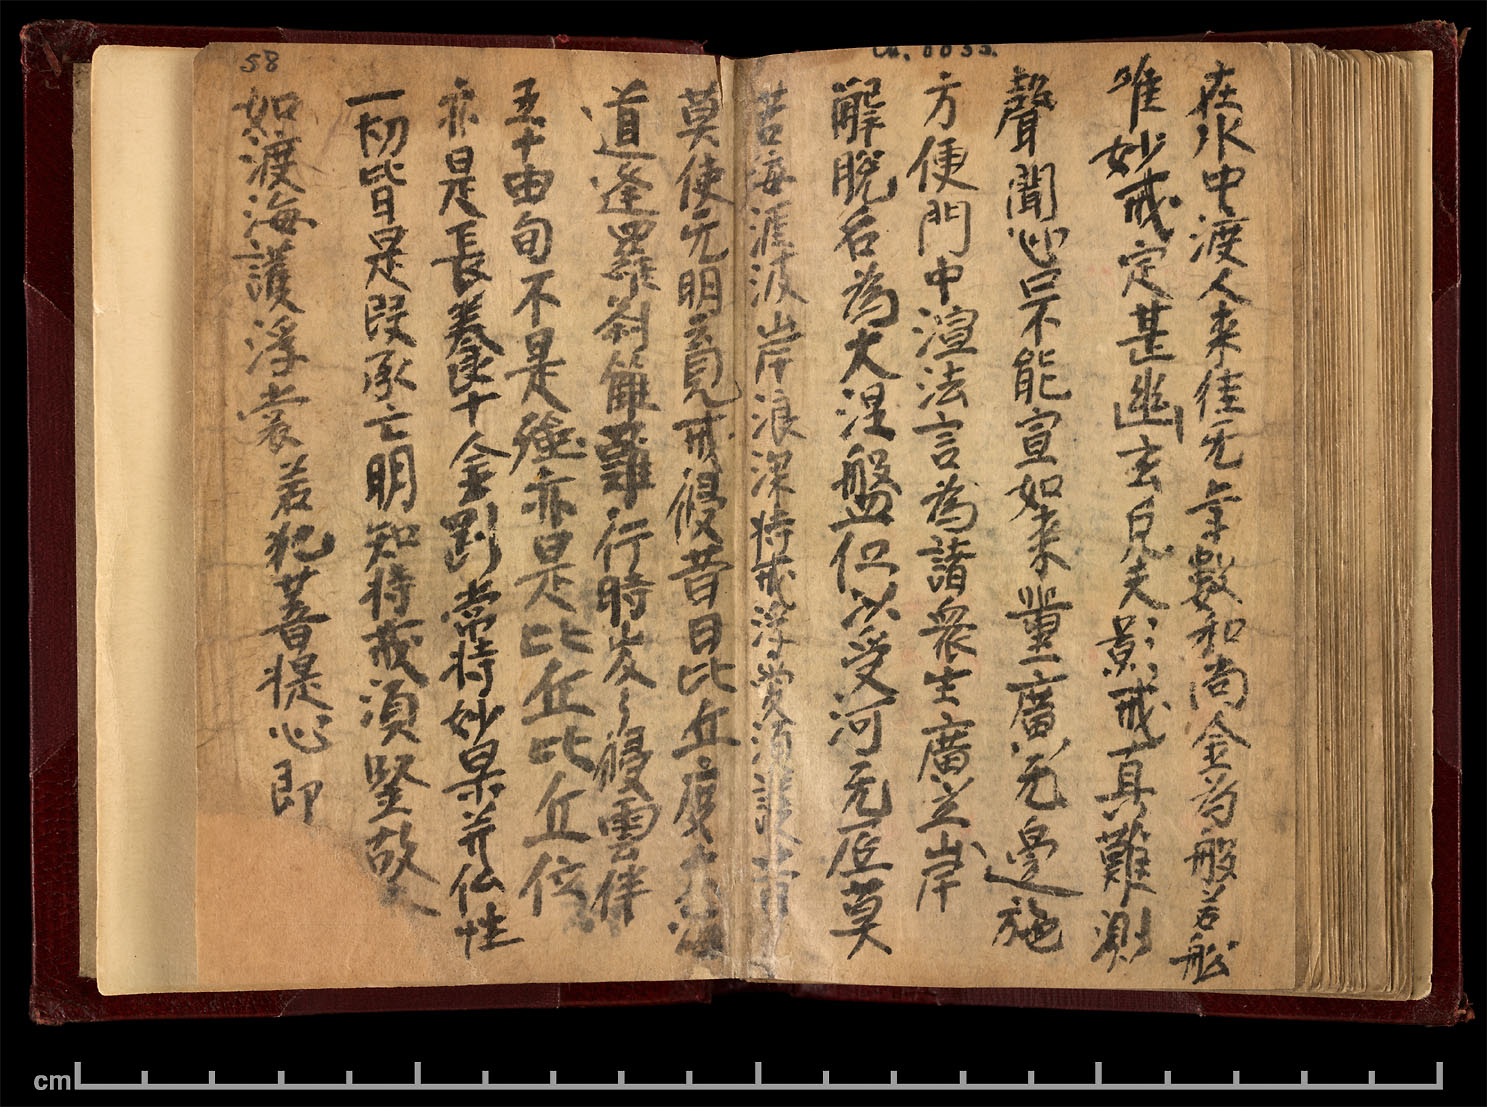 在水中渡人来往无亭數和尚金為般若船
唯妙戒定甚幽玄凡夫影戒真難測
聲聞心口不能宣如来量廣无邊施
方便門中渲法言為諸衆生廣立岸
解脫名為大涅盤但以受河无底莫
苦海涯波岸浪深持戒浮
莫使无明覓戒侵昔日比丘度大海
道逢羅刹籬難行時炭々侵雲伴
五十由旬不是強亦是比丘比丘位
亦是長養十金剛常持妙果并仏性
一切皆是段承亡明知持戒湏堅故
如渡海護浮囊若犯菩提心即
58
cm